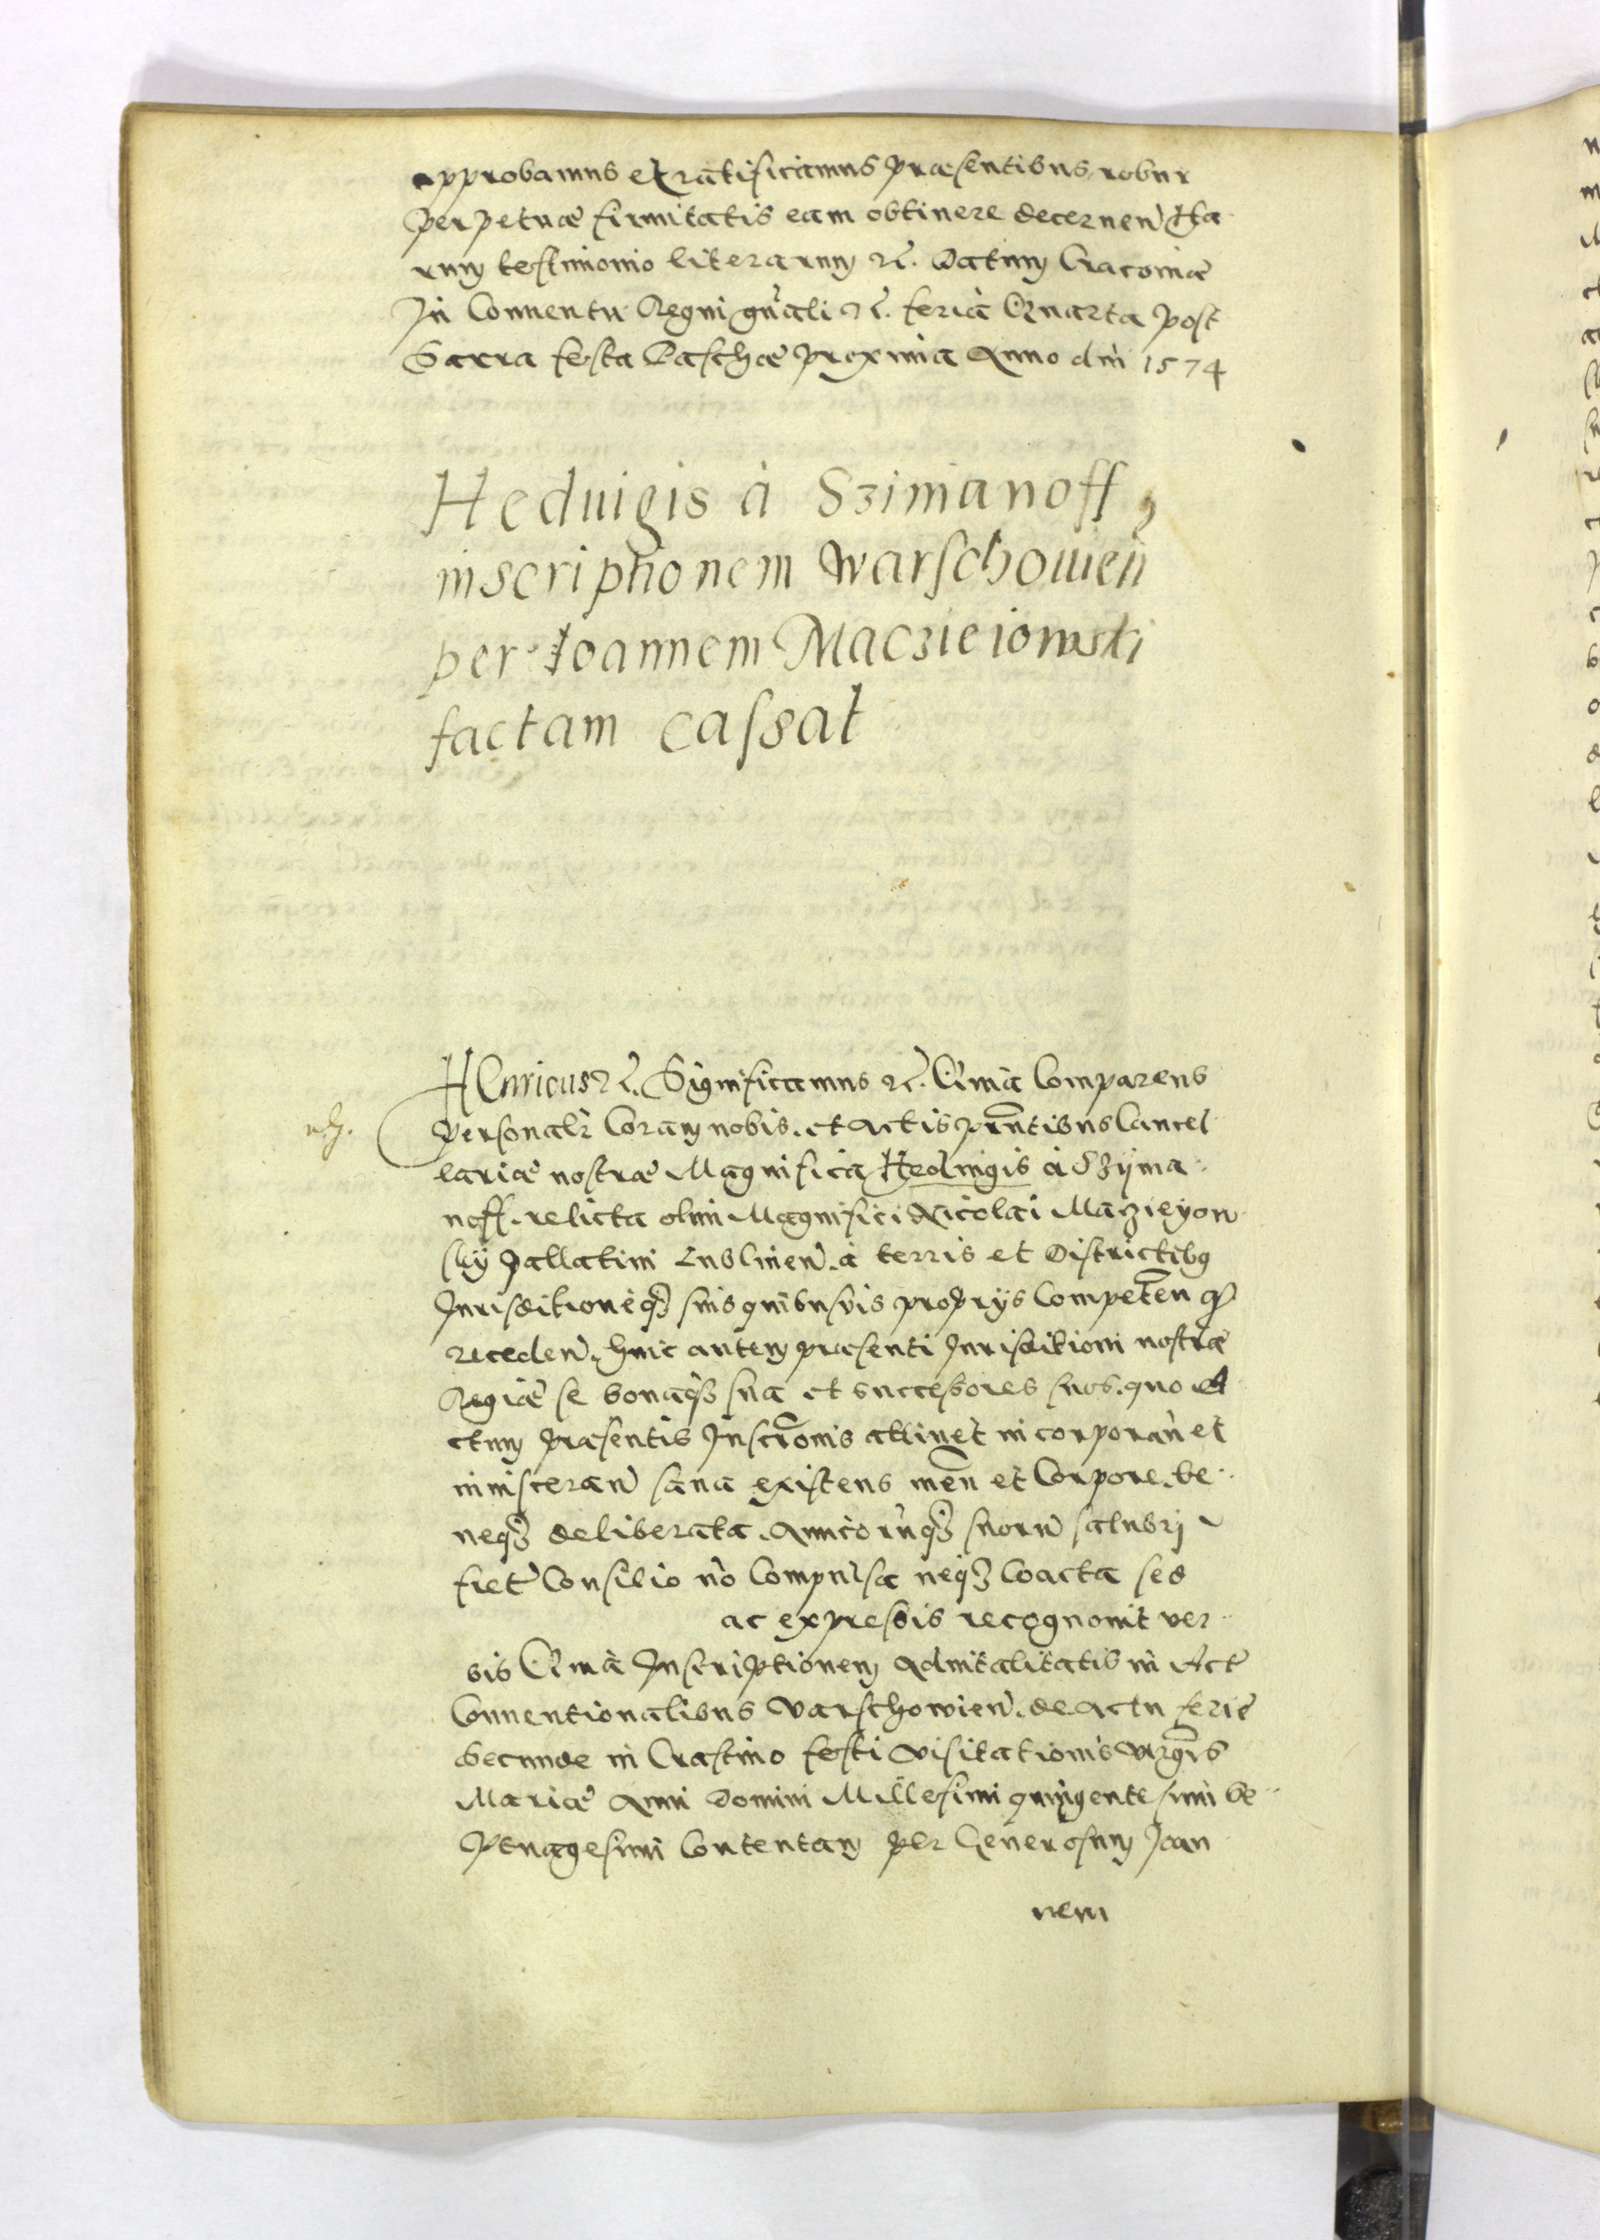 approbamus et ratificamus præsentibus, robur
perpetuæ firmitatis eam obtinere decernen̄ Ha
rum testimonio literarum etc. Datum Cracoviæ
In Conventu Regni gn̄ali etc. feria Quarta post
Sacra festa Paschæ proxima Anno dn̄i 1574
Heduigis à Szimanoff,
inscriptionem Warschouien̄
per Ioannem Maczieiowski
factam cassat
HEnricus etc. Significamus etc. Quia Comparens
personalr̄ Coram nobis. et Actis pn̄tibus Cancel
lariæ nostræ Magnifica Heduigis à Szÿma
noff. relicta olim Magnifici Nicolai Maczieyow
skÿ Pallatini Lublinen̄. à terris et Districtibq
Jurisditioneqȝ suis quibusvis proprÿs Competen̄ qȝ
receden̄. huic autem præsenti Jurisditioni nostræ
Regiæ se bonaqȝ sua et successores suos. quo ad
ctum præsentis Inscron̄is attinet incorporan̄ et
inuisceran̄ sana existens men̄ et Corpore. be
neqȝ deliberata. Amicorūqȝ suorū salubrj
fret̄ Consilio nō Compulsa neqȝ Coacta sed
ac expressis recognouit ver
bis Quia Inscriptionem Aduitalitatis in Act̄
Conuentionalibus Varschowien̄. de actu ferie
Secunde in Crastino festi visitationis virgīs
Mariæ Anni Domini Millesimi quingentesimi se
ptuagesimi Contentam per Generosum Joan
nem